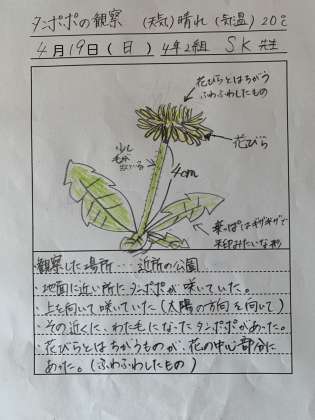 タンポポの観察 (天気)晴れ (気温) 20℃
4月19日(日) 4年2組 SK 先生
花びらとはちがう
ふわふわしたもの
花びら
少し
毛が
出ている
4cm
葉っぱはギザギザで
矢印みたいな形
観察した場所…近所の公園
・地面に近い所にタンポポが咲いていた。
・上を向いて咲いていた(太陽の方向を向いて)
・その近くに、わた毛になったタンポポがあった。
・花びらとはちがうものが、花の中心部分に
あった。(ふわふわしたもの)